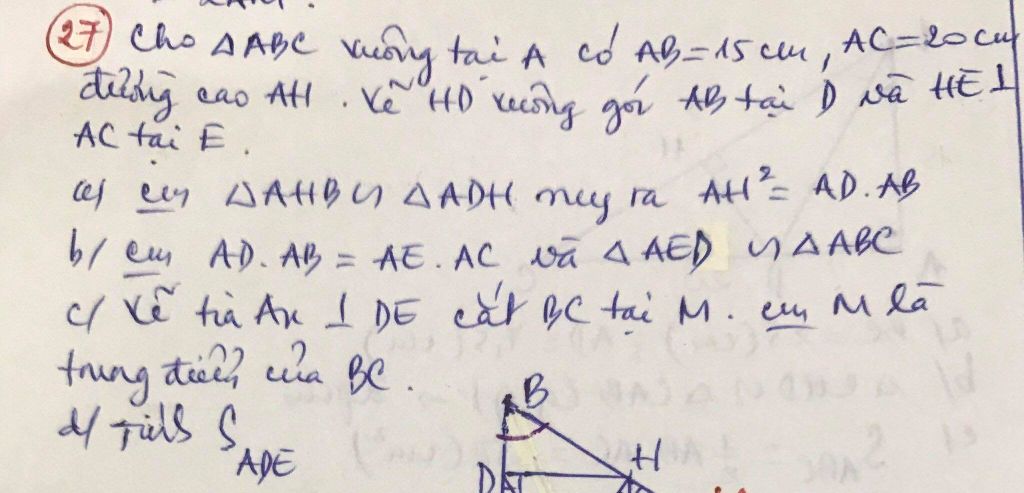 27 Cho △ABC vuông tại A có AB=15cm, AC=20cm
đường cao AH. Kẽ HD vuông gói AB tại D và HE⊥
AC tại E.
a/ cm △AHB ∽ △ADH suy ra AH²= AD.AB
b/ cm AD.AB = AE.AC và △AED ∽ △ABC
c/ Kẽ tia Ax ⊥ DE cắt BC tại M. cm M là
trung điểm của BC.
d/ Tính S_ADE
B
D
H